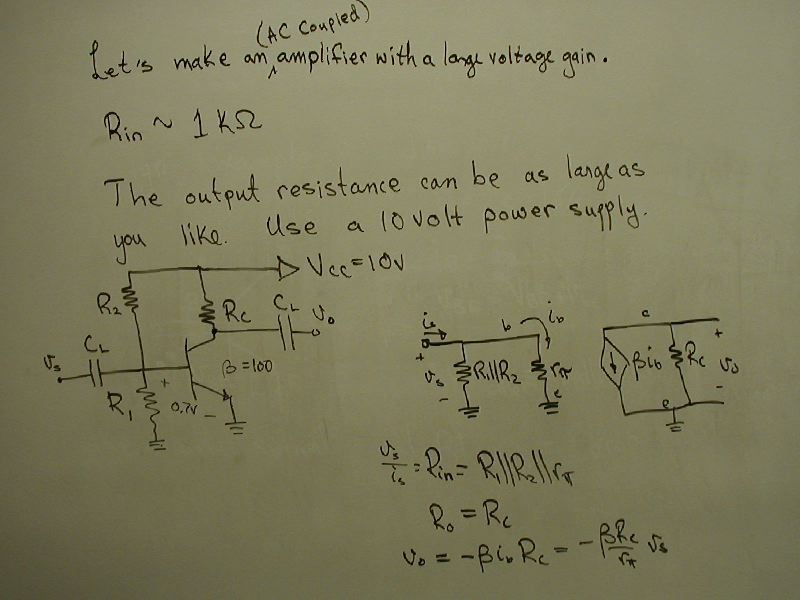 (AC Coupled)
Let's make an amplifier with a large voltage gain.
Rin ~ 1 KΩ
The output resistance can be as large as
you like. Use a 10 volt power supply.
Vcc = 10V
R2
Rc
CL
vo
vs
CL
β = 100
R1
+
0.7V -
is
b
ib
+
vs
-
R1||R2
rπ
e
c
βib
Rc
+
vo
-
e
vs/is = Rin = R1||R2||rπ
Ro = Rc
vo = -βib Rc = -βRc/rπ vs